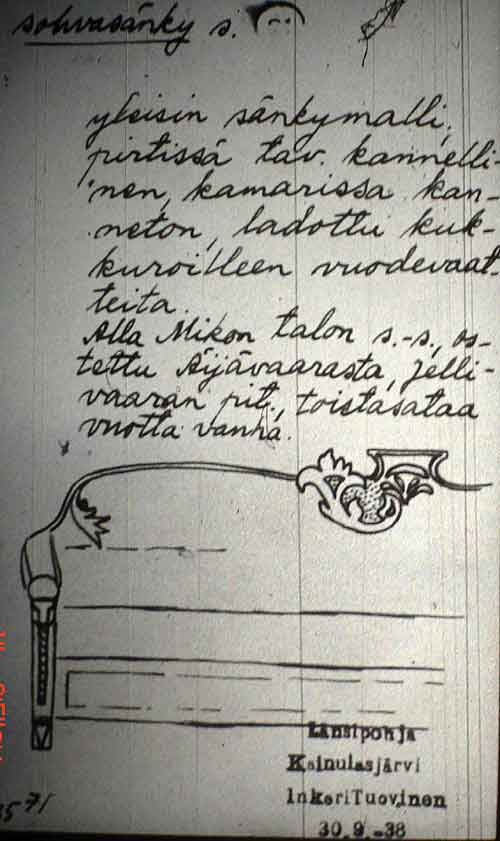 sohvasänky s.
yleisin sänkymalli,
pirtissä tav. kannelli-
nen, kamarissa kan-
neton, ladottu kuk-
kuroilleen vuodevaat-
teita.
Alla Mikon talon s.-s., os-
tettu Äijävaarasta, Jelli-
vaaran pit., toistasataa
vuotta vanha.
Länsipohja
Kainulasjärvi
Inkeri Tuovinen
30.9.-38